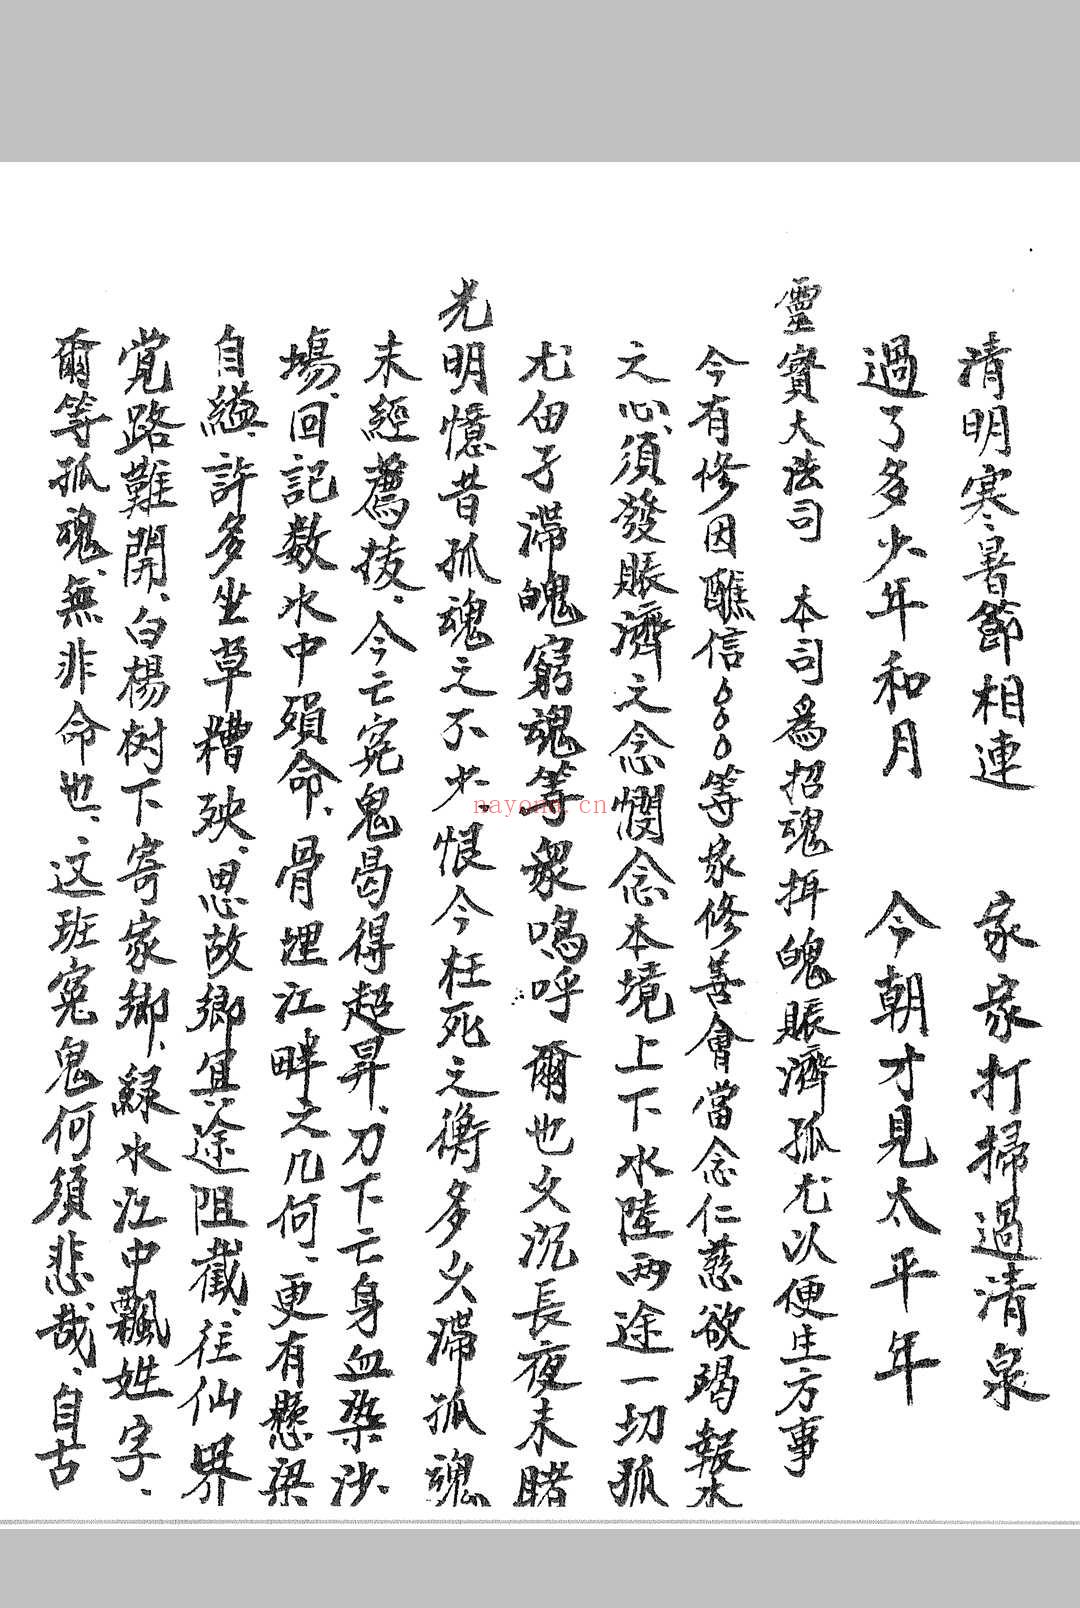 清明寒暑節相連　家家打掃過清泉
過了多少年和月　今朝才見太平年
靈寶大法司　本司為招魂拜魄賬濟孤尤以便生方事
今有修因醮信等家修善會當念仁慈欲竭報本
之心須發賬濟之念憫念本境上下水陸兩途一切孤
尤由子滯魄窮魂等衆嗚呼爾也久沉長夜未睹
光明憶昔孤魂之不少恨今枉死之衡多久滯孤魂
未經薦拔、今亡寃鬼曷得超昇、刀下亡身血染沙
場、回記数水中殞命、骨埋江畔之几何、更有懸梁
自縊、許多坐草糟殃、思故鄉且途阻截、往仙界
覓路難開、白楊树下寄家鄉、緑水江中飄姓字、
爾等孤魂、無非命也、这班寃鬼何須悲哉、自古
nayona.cn